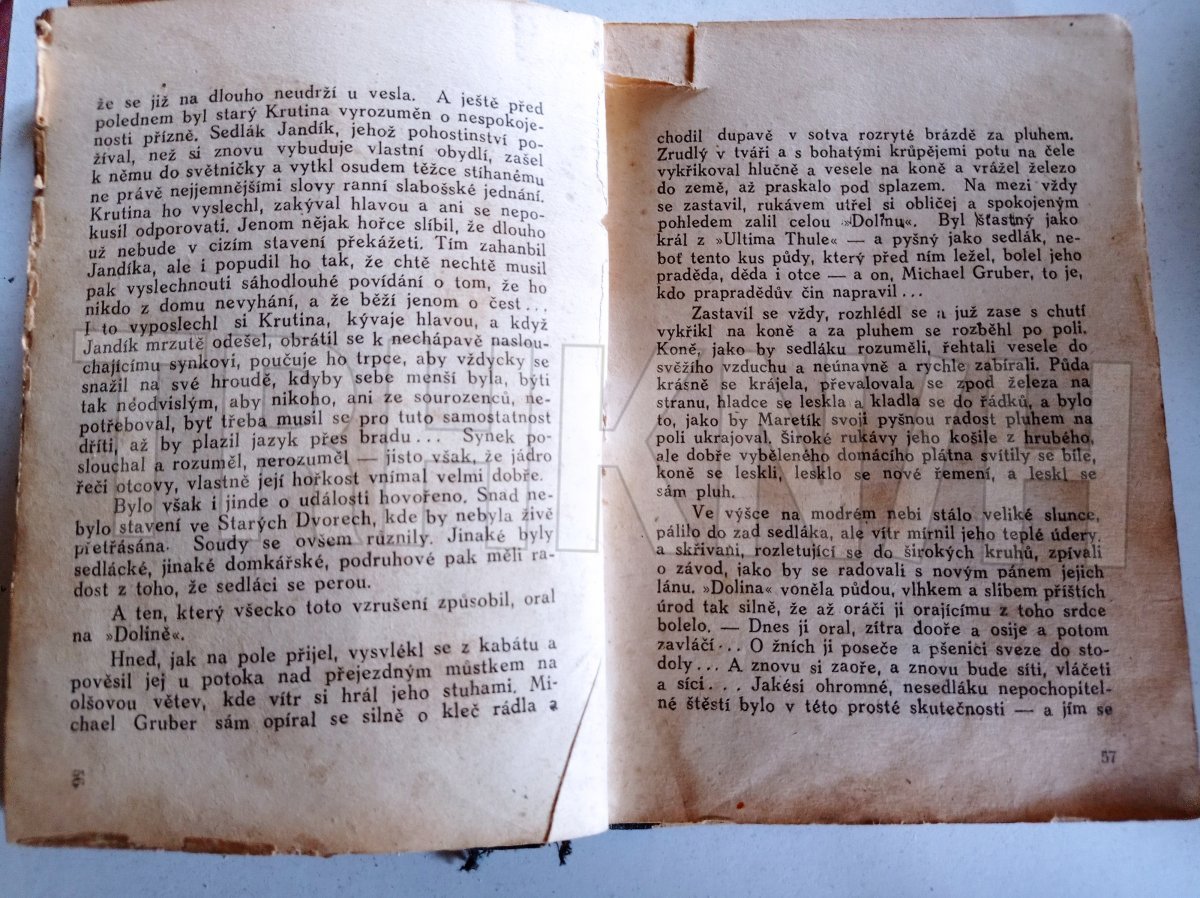 že se již na dlouho neudrží u vesla. A ještě před
polednem byl starý Krutina vyrozuměn o nespokoje-
nosti přízně. Sedlák Jandík, jehož pohostinství po-
žíval, než si znovu vybuduje vlastní obydlí, zašel
k němu do světničky a vytkl osudem těžce stíhanému
ne právě nejjemnějšími slovy ranní slabošské jednání.
Krutina ho vyslechl, zakýval hlavou a ani se nepo-
kusil odporovati. Jenom nějak hořce slíbil, že dlouho
už nebude v cizím stavení překážeti. Tím zahanbil
Jandíka, ale i popudil ho tak, že chtě nechtě musil
pak vyslechnouti sáhodlouhé povídání o tom, že ho
nikdo z domu nevyhání, a že běží jenom o čest...
I to vyposlechl si Krutina, kývaje hlavou, a když
Jandík mrzutě odešel, obrátil se k nechápavě naslou-
chajícímu synkovi, poučuje ho trpce, aby vždycky se
snažil na své hroudě, kdyby sebe menší byla, býti
tak neodvislým, aby nikoho, ani ze sourozenců, ne-
potřeboval, byť třeba musil se pro tuto samostatnost
dříti, až by plazil jazyk přes bradu... Synek po-
slouchal a rozuměl, nerozuměl — jisto však, že jádro
řečí otcovy, vlastně její hořkost vnímal velmi dobře.
Bylo však i jinde o události hovořeno. Snad ne-
bylo stavení ve Starých Dvorech, kde by nebyla živě
přetřásána. Soudy se ovšem různily. Jinaké byly
sedlácké, jinaké domkářské, podruhové pak měli ra-
dost z toho, že sedláci se perou.
A ten, který všecko toto vzrušení způsobil, oral
na »Dolině«.
Hned, jak na pole přijel, vysvlékl se z kabátu a
pověsil jej u potoka nad přejezdným můstkem na
olšovou větev, kde vítr si hrál jeho stuhami. Mi-
chael Gruber sám opíral se silně o kleč rádla a
56
chodil dupavě v sotva rozryté brázdě za pluhem.
Zrudlý v tváři a s bohatými krůpějemi potu na čele
vykřikoval hlučně a vesele na koně a vrážel železo
do země, až praskalo pod splazem. Na mezi vždy
se zastavil, rukávem utřel si obličej a spokojeným
pohledem zalil celou »Dolinu«. Byl šťastný jako
král z »Ultima Thule« — a pyšný jako sedlák, ne-
boť tento kus půdy, který před ním ležel, bolel jeho
praděda, děda i otce — a on, Michael Gruber, to je,
kdo prapradědův čin napravil...
Zastavil se vždy, rozhlédl se a již zase s chutí
vykřikl na koně a za pluhem se rozběhl po poli.
Koně, jako by sedláku rozuměli, řehtali vesele do
svěžího vzduchu a neúnavně a rychle zabírali. Půda
krásně se krájela, převalovala se zpod železa na
stranu, hladce se leskla a kladla se do řádků, a bylo
to, jako by Maretík svoji pyšnou radost pluhem na
poli ukrajoval. Široké rukávy jeho košile z hrubého,
ale dobře vyběleného domácího plátna svítily se bíle,
koně se leskli, lesklo se nové řemení, a leskl se
sám pluh.
Ve výšce na modrém nebi stálo veliké slunce,
pálilo do zad sedláka, ale vítr mírnil jeho teplé údery,
a skřivani, rozletující se do širokých kruhů, zpívali
o závod, jako by se radovali s novým pánem jejich
lánu. »Dolina« voněla půdou, vlhkem a slibem příštích
úrod tak silně, že až oráči ji orajícímu z toho srdce
bolelo. — Dnes ji oral, zítra dooře a osije a potom
zavláčí... O žních ji poseče a pšenici sveze do sto-
doly... A znovu si zaoře, a znovu bude síti, vláčeti
a síci... Jakési ohromné, nesedláku nepochopitel-
né štěstí bylo v této prosté skutečnosti — a jím se
57